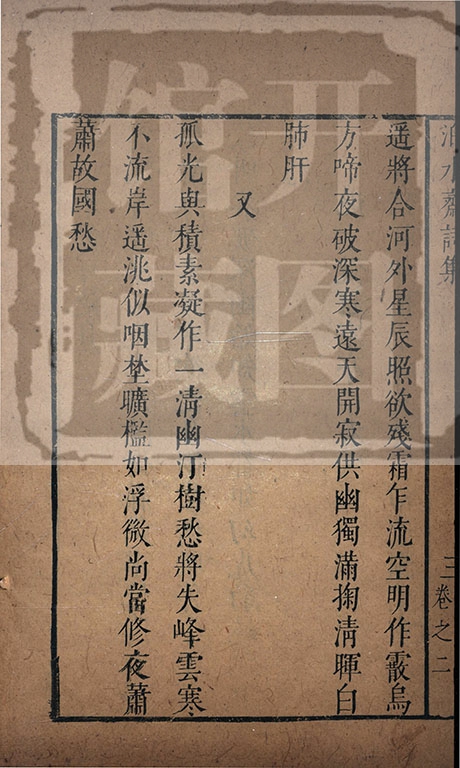 遥將合河外星辰照欲殘霜乍流空明作霰烏
方啼夜破深寒遠天開寂供幽獨滿掬清暉白
肺肝
又
孤光與積素凝作一清幽汀樹愁將失峰雲寒
不流岸遥洮似咽埜曠檻如浮微尚當修夜蕭
蕭故國愁
水齋詩集
三卷之二
開
圖
館
藏